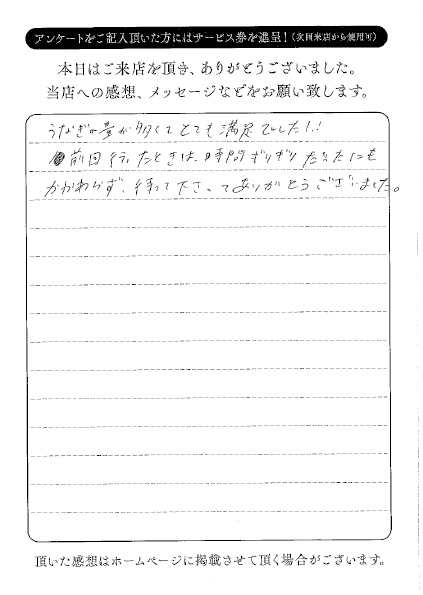 アンケートをご記入頂いた方にはサービス券を進呈!(次回来店から使用可)
本日はご来店を頂き、ありがとうございました。
当店への感想、メッセージなどをお願い致します。
うなぎの量が多くてとても満足でした!!
前回行ったときは、時間ぎりぎりだったにも
かかわらず、待って下さってありがとうございました。
頂いた感想はホームページに掲載させて頂く場合がございます。